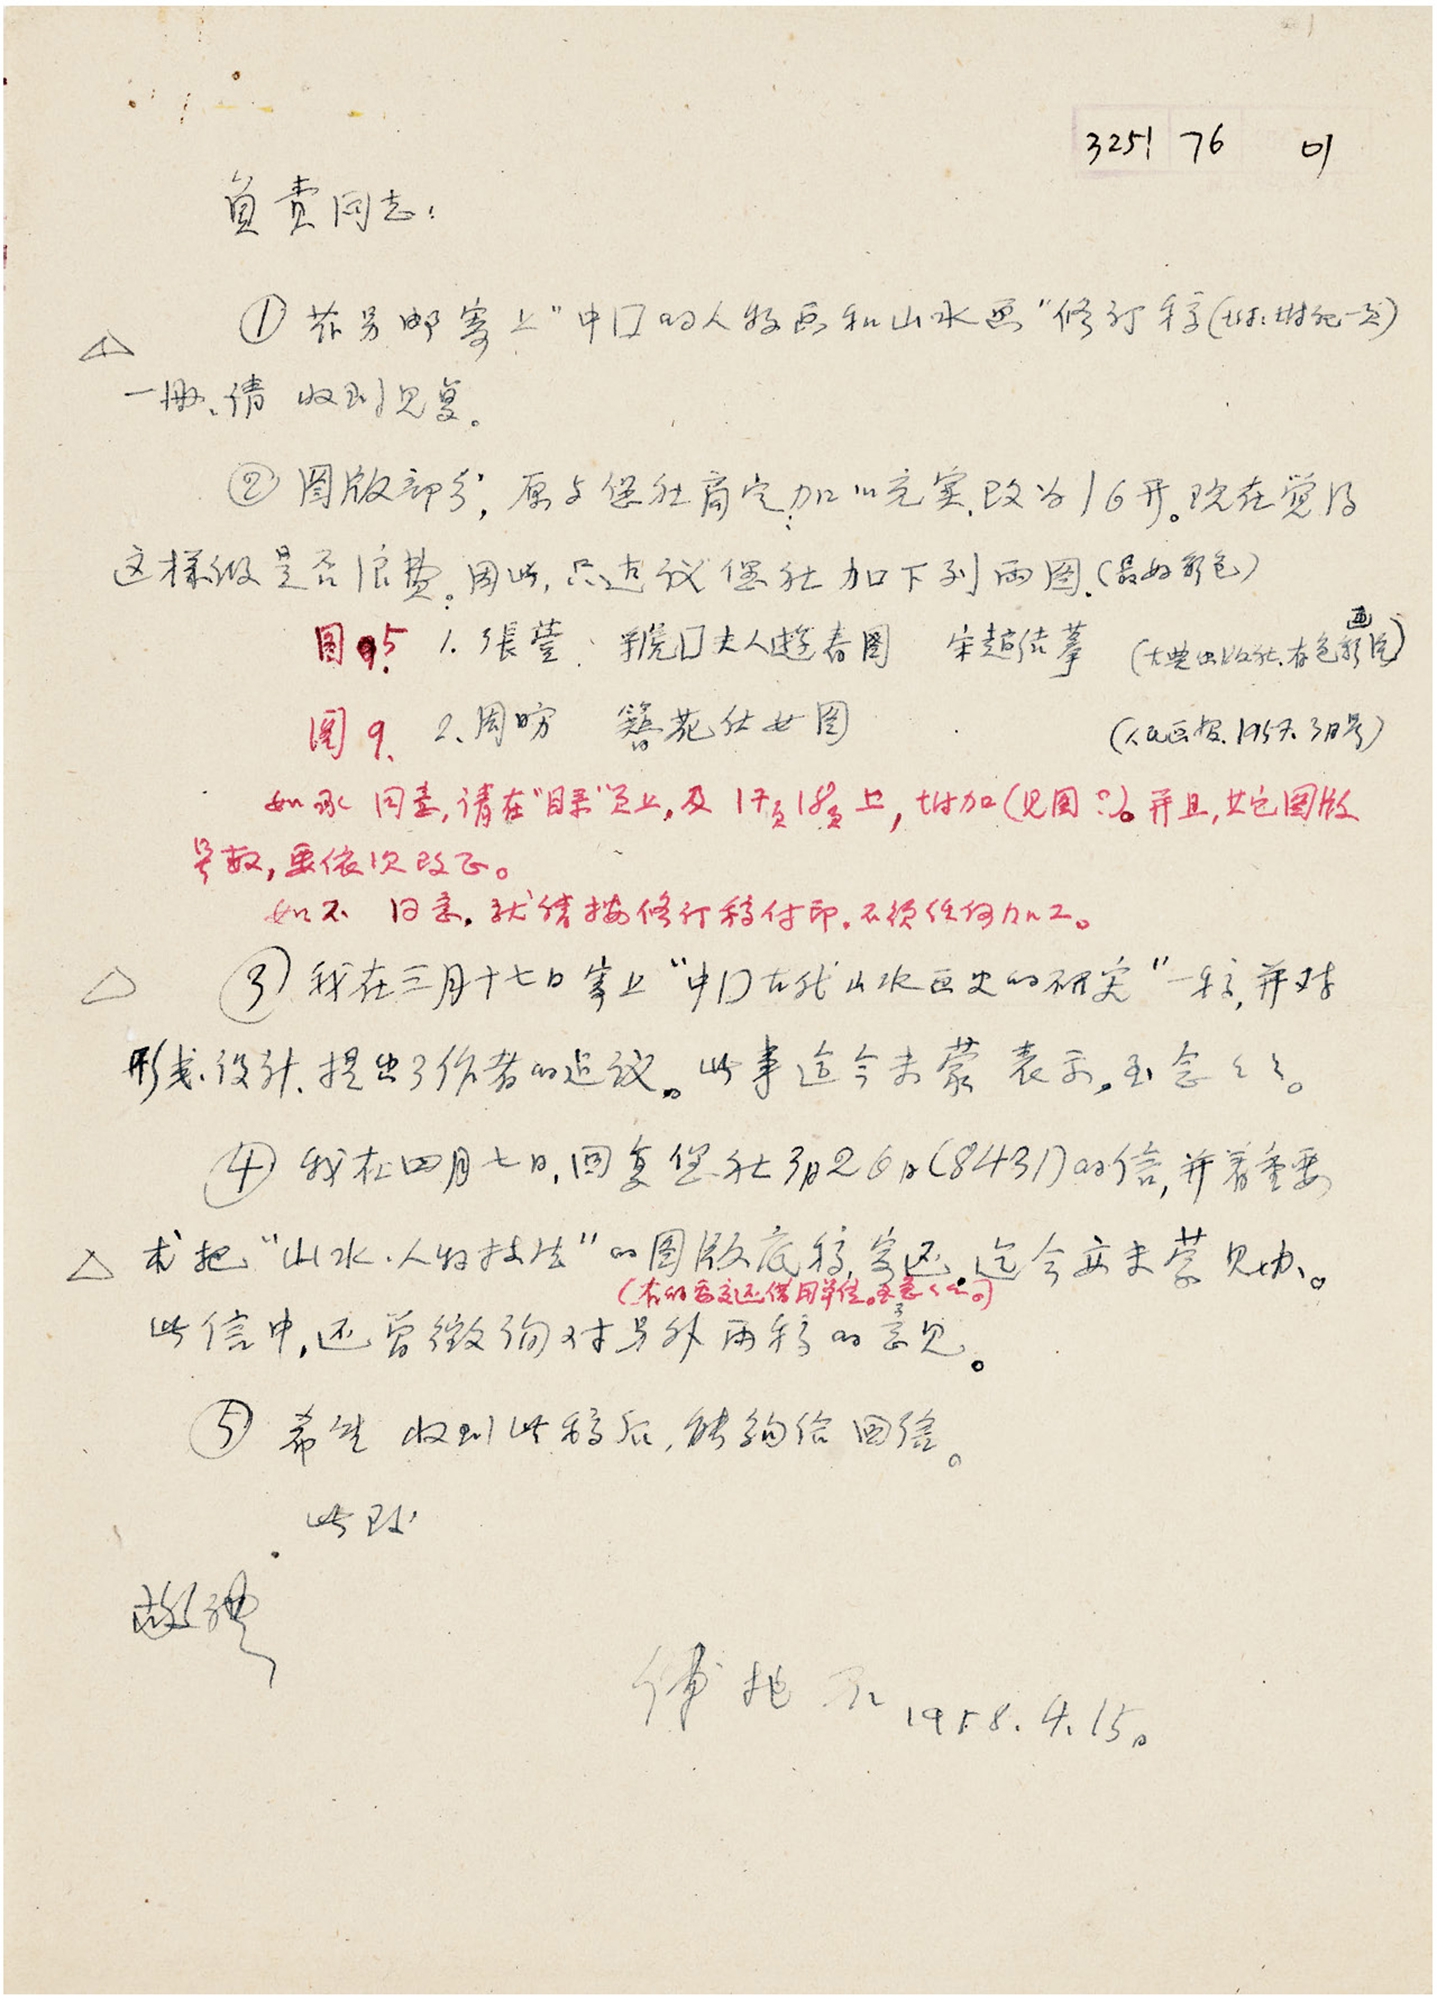 3251 76 01
负责同志：
① 兹另邮寄上“中国的人物画和山水画”修订稿(附:附记一页)
一册、请 收到见复。
② 图版部分，原与您社商定加以充实，改为16开。现在觉得
这样做是否浪费。因此，只建议您社加下列两图.(最好彩色)
图5. 1. 張萱：虢国夫人遊春图 宋趙佶摹 (古典出版社.有色彩画片)
图9. 2. 周昉 簪花仕女图 (人民画报.1957.3月号)
如承 同意,请在“目录”页上,及 17页18页上,附加(见图?)。并且,其它图版
号数,要依次改正。
如不 同意.就请按修订稿付印.不须任何加工。
③ 我在三月十七日寄上“中国古代山水画史的研究”一稿,并对
形式、设计、提出了作者的建议。此事迄今未蒙 表示,至念〻〻。
④ 我在四月七日,回复您社3月26日(8431)的信,并着重要
求把“山水·人物技法”的图版底稿,寄还.迄今亦未蒙见办。
(有的要交还借用单位。至急〻〻。)
此信中,还曾徵询对另外两稿的意见。
⑤ 希望 收到此稿后,能够给回信。
此致
敬礼
傅抱石 1958.4.15。